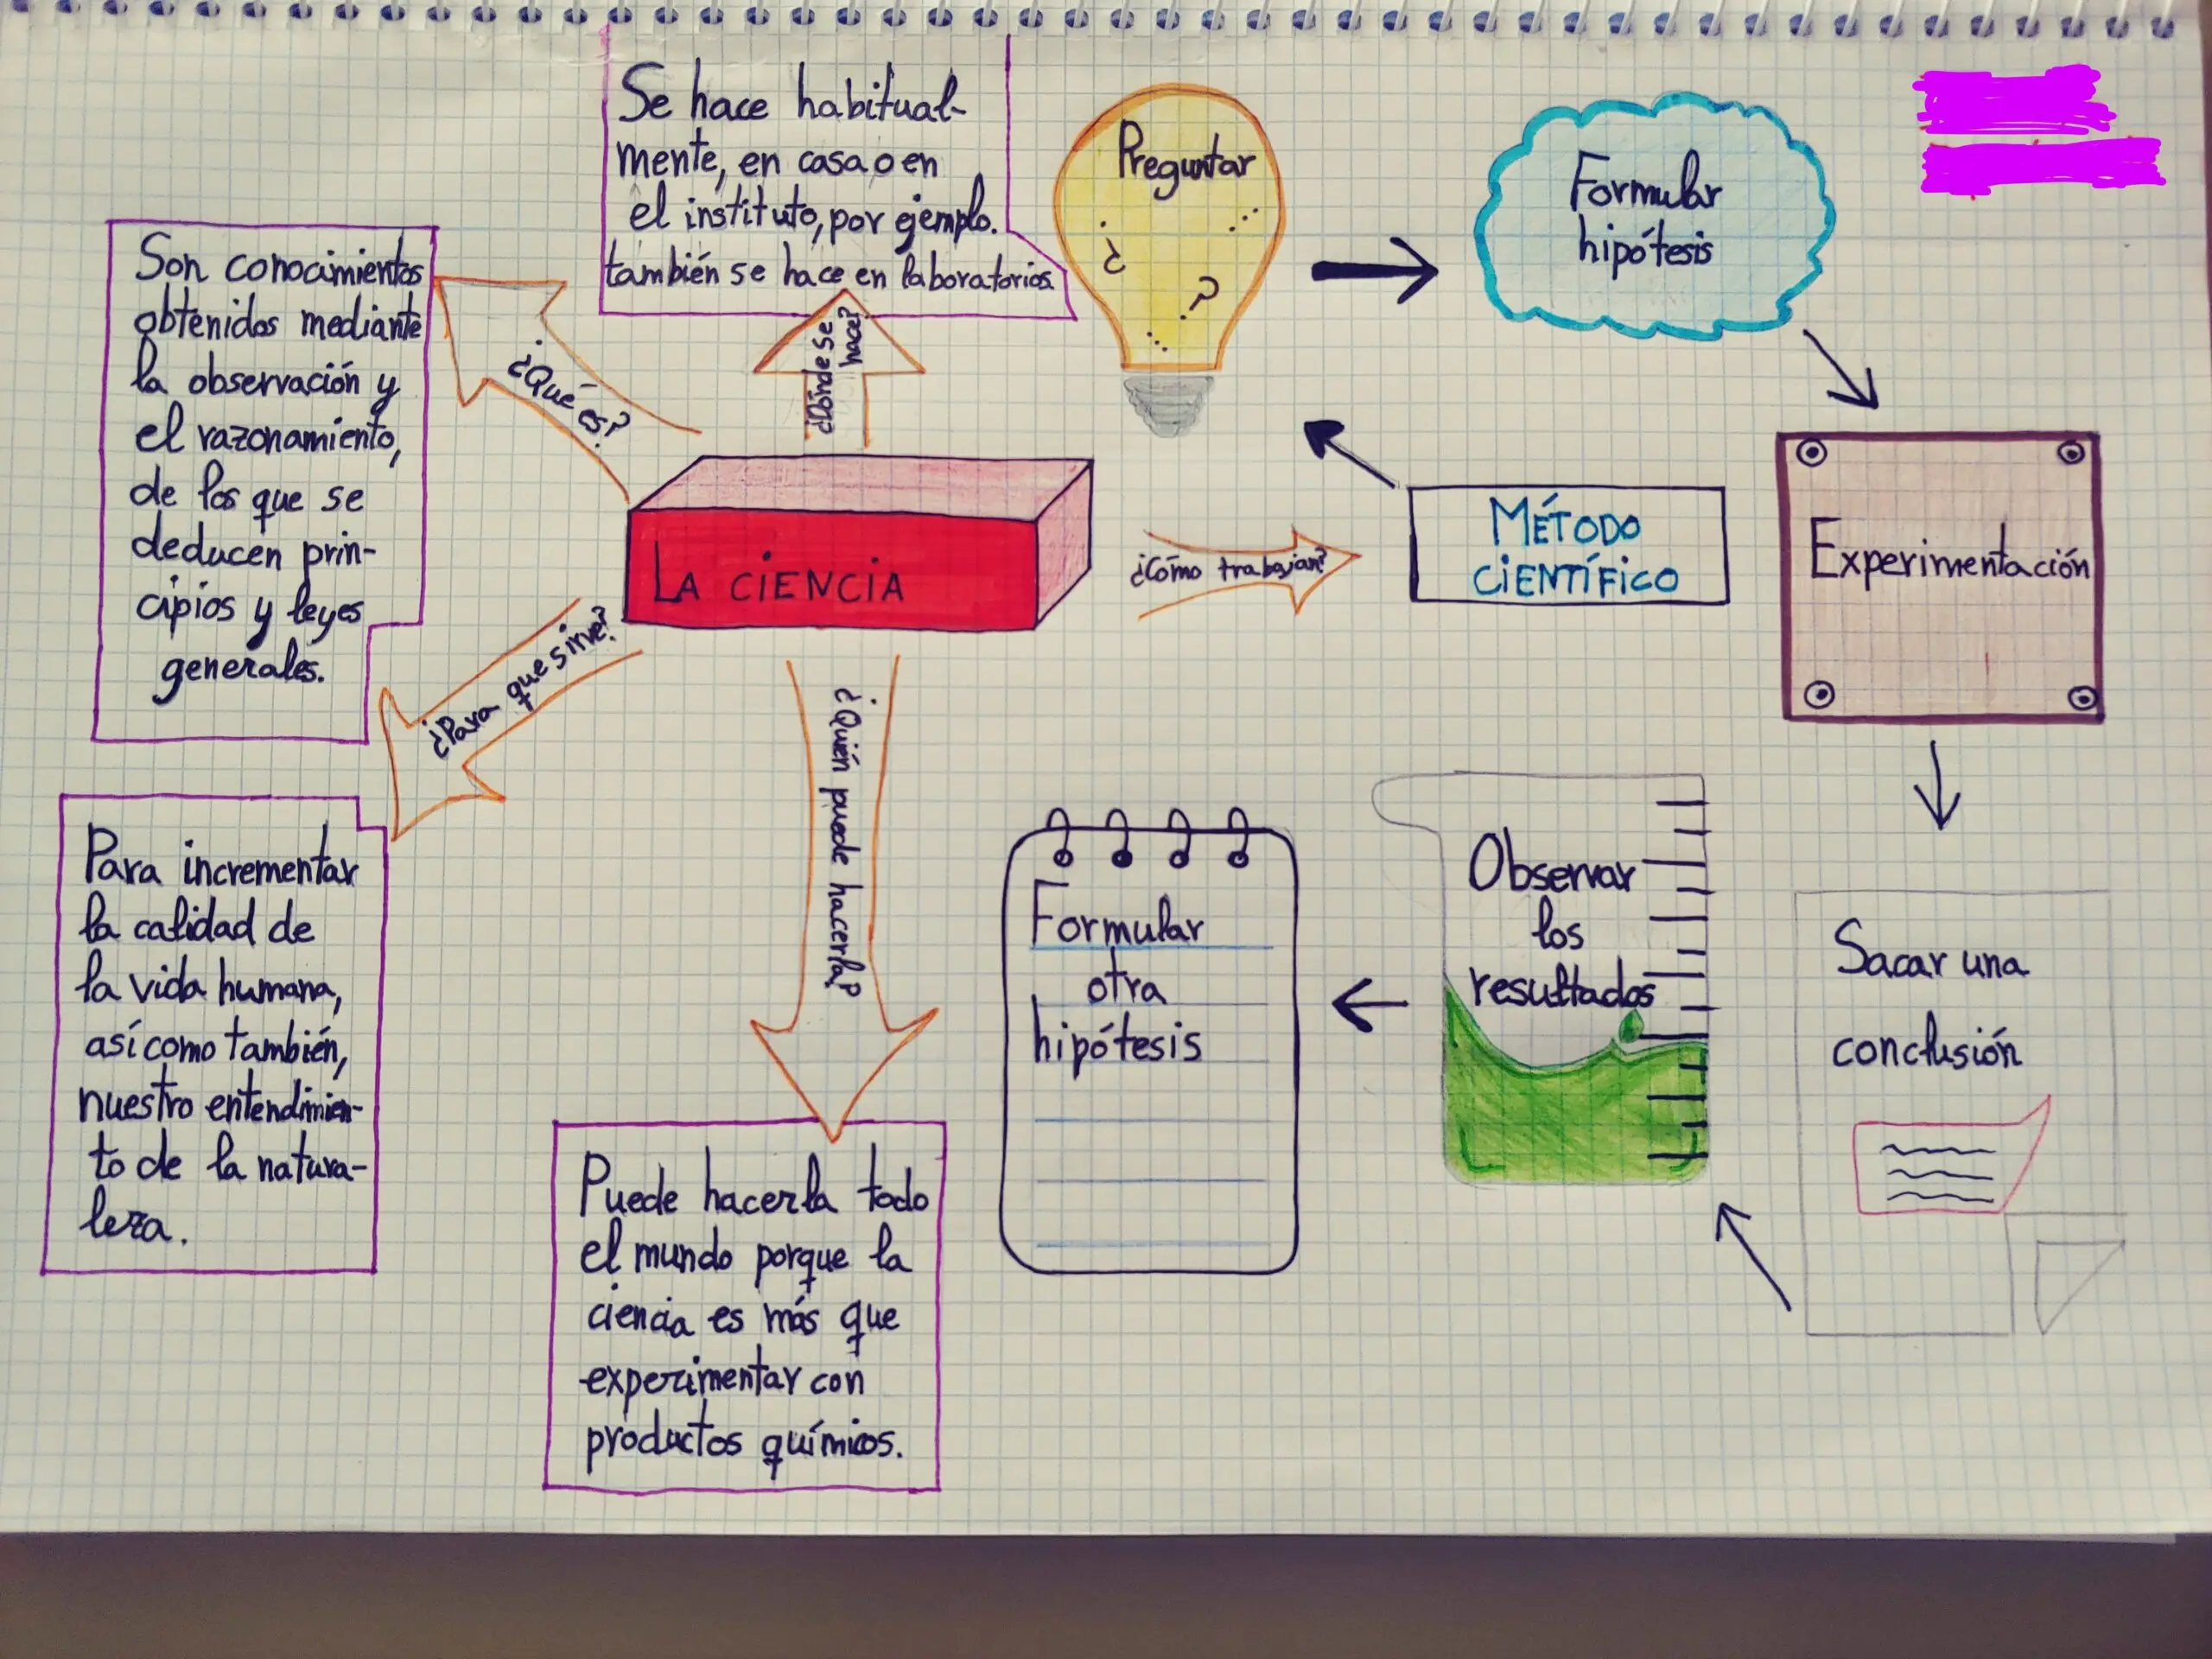 Se hace habitual-
mente, en casa o en
el instituto, por ejemplo.
también se hace en laboratorios
Preguntar
¿
?
Formular
hipótesis
Son conocimientos
obtenidos mediante
la observación y
el razonamiento,
de los que se
deducen prin-
cipios y leyes
generales.
¿Qué es?
¿Dónde se
hace?
LA CIENCIA
¿Cómo trabajan?
MÉTODO
CIENTÍFICO
Experimentación
¿Para que sirve?
¿Quién puede hacerla?
Para incrementar
la calidad de
la vida humana,
así como también,
nuestro entendimien-
to de la natura-
leza.
Puede hacerla todo
el mundo porque la
ciencia es más que
experimentar con
productos químicos.
Formular
otra
hipótesis
Observar
los
resultados
Sacar una
conclusión